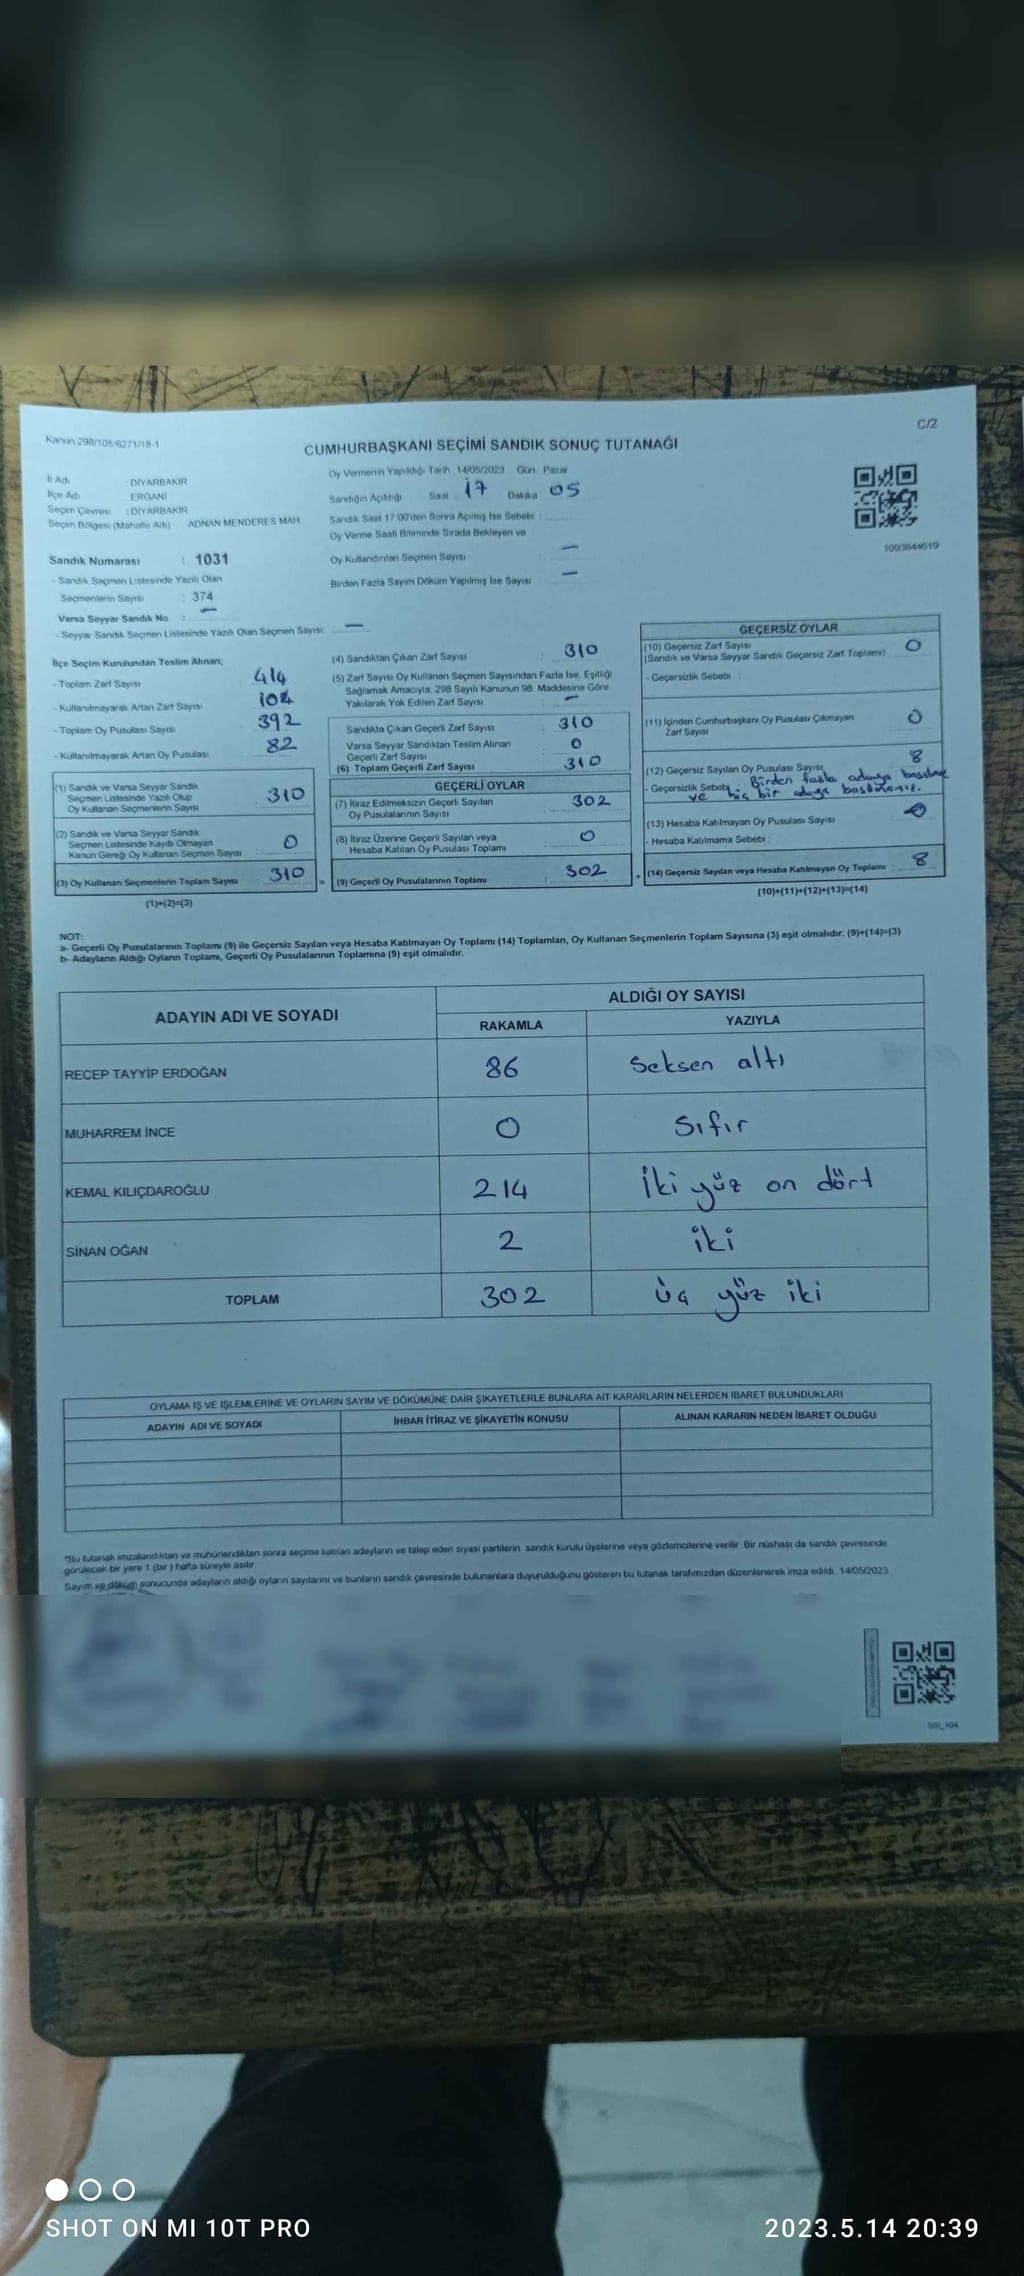 C/2
Kanun.298/105;6271/18-1
CUMHURBAŞKANI SEÇİMİ SANDIK SONUÇ TUTANAĞI
İl Adı : DİYARBAKIR
İlçe Adı : ERGANİ
Seçim Çevresi : DİYARBAKIR
Seçim Bölgesi (Mahalle Adı) ADNAN MENDERES MAH
Oy Vermenin Yapıldığı Tarih :14/05/2023 Gün Pazar
Sandığın Açıldığı Saat 17 Dakika 05
Sandık Saat 17:00'den Sonra Açımış İse Sebebi :
Oy Verme Saati Bitiminde Sırada Bekleyen ve
Oy Kullandırılan Seçmen Sayısı —
Birden Fazla Sayım Döküm Yapılmış İse Sayısı —
1093844619
Sandık Numarası : 1031
- Sandık Seçmen Listesinde Yazılı Olan
Seçmenlerin Sayısı : 374
Varsa Seyyar Sandık No : —
- Seyyar Sandık Seçmen Listesinde Yazılı Olan Seçmen Sayısı: —
İlçe Seçim Kurulundan Teslim Alınan;
- Toplam Zarf Sayısı 414
- Kullanılmayarak Artan Zarf Sayısı 104
- Toplam Oy Pusulası Sayısı 392
- Kullanılmayarak Artan Oy Pusulası 82
(1) Sandık ve Varsa Seyyar Sandık
Seçmen Listesinde Yazılı Olup
Oy Kullanan Seçmenlerin Sayısı 310
(2) Sandık ve Varsa Seyyar Sandık
Seçmen Listesinde Kayıtlı Olmayan
Kanun Gereği Oy Kullanan Seçmen Sayısı 0
(3) Oy Kullanan Seçmenlerin Toplam Sayısı 310
(1)+(2)=(3)
(4) Sandıktan Çıkan Zarf Sayısı : 310
(5) Zarf Sayısı Oy Kullanan Seçmen Sayısından Fazla İse, Eşitliği
Sağlamak Amacıyla, 298 Sayılı Kanunun 98. Maddesine Göre
Yakılarak Yok Edilen Zarf Sayısı —
Sandıkta Çıkan Geçerli Zarf Sayısı : 310
Varsa Seyyar Sandıktan Teslim Alınan
Geçerli Zarf Sayısı : 0
(6) Toplam Geçerli Zarf Sayısı : 310
GEÇERLİ OYLAR
(7) İtiraz Edilmeksizin Geçerli Sayılan
Oy Pusulalarının Sayısı : 302
(8) İtiraz Üzerine Geçerli Sayılan veya
Hesaba Katılan Oy Pusulası Toplamı : 0
= (9) Geçerli Oy Pusulalarının Toplamı : 302
GEÇERSİZ OYLAR
(10) Geçersiz Zarf Sayısı
(Sandık ve Varsa Seyyar Sandık Geçersiz Zarf Toplamı) : 0
- Geçersizlik Sebebi :
(11) İçinden Cumhurbaşkanı Oy Pusulası Çıkmayan
Zarf Sayısı 0
(12) Geçersiz Sayılan Oy Pusulası Sayısı 8
- Geçersizlik Sebebi : Birden fazla adaya basılmış
ve hiç bir adaya basılmamış.
(13) Hesaba Katılmayan Oy Pusulası Sayısı 0
- Hesaba Katılmama Sebebi :
(14) Geçersiz Sayılan veya Hesaba Katılmayan Oy Toplamı : 8
(10)+(11)+(12)+(13)=(14)
NOT:
a- Geçerli Oy Pusulalarının Toplamı (9) ile Geçersiz Sayılan veya Hesaba Katılmayan Oy Toplamı (14) Toplamları, Oy Kullanan Seçmenlerin Toplam Sayısına (3) eşit olmalıdır. (9)+(14)=(3)
b- Adayların Aldığı Oyların Toplamı, Geçerli Oy Pusulalarının Toplamına (9) eşit olmalıdır.
ADAYIN ADI VE SOYADI ALDIĞI OY SAYISI
RAKAMLA YAZIYLA
RECEP TAYYİP ERDOĞAN 86 Seksen altı
MUHARREM İNCE 0 Sıfır
KEMAL KILIÇDAROĞLU 214 İki yüz on dört
SİNAN OĞAN 2 iki
TOPLAM 302 üç yüz iki
OYLAMA İŞ VE İŞLEMLERİNE VE OYLARIN SAYIM VE DÖKÜMÜNE DAİR ŞİKAYETLERLE BUNLARA AİT KARARLARIN NELERDEN İBARET BULUNDUKLARI
ADAYIN ADI VE SOYADI İHBAR İTİRAZ VE ŞİKAYETİN KONUSU ALINAN KARARIN NEDEN İBARET OLDUĞU
*Bu tutanak imzalandıktan ve mühürlendikten sonra seçime katılan adayların ve talep eden siyasi partilerin sandık kurulu üyelerine veya gözlemcilerine verilir. Bir nüshası da sandık çevresinde
görülecek bir yere 1 (bir ) hafta süreyle asılır.
Sayım ve döküm sonucunda adayların aldığı oyların sayılarını ve bunların sandık çevresinde bulunanlara duyurulduğunu gösteren bu tutanak tarafımızdan düzenlenerek imza edildi. 14/05/2023
SHOT ON MI 10T PRO
2023.5.14 20:39